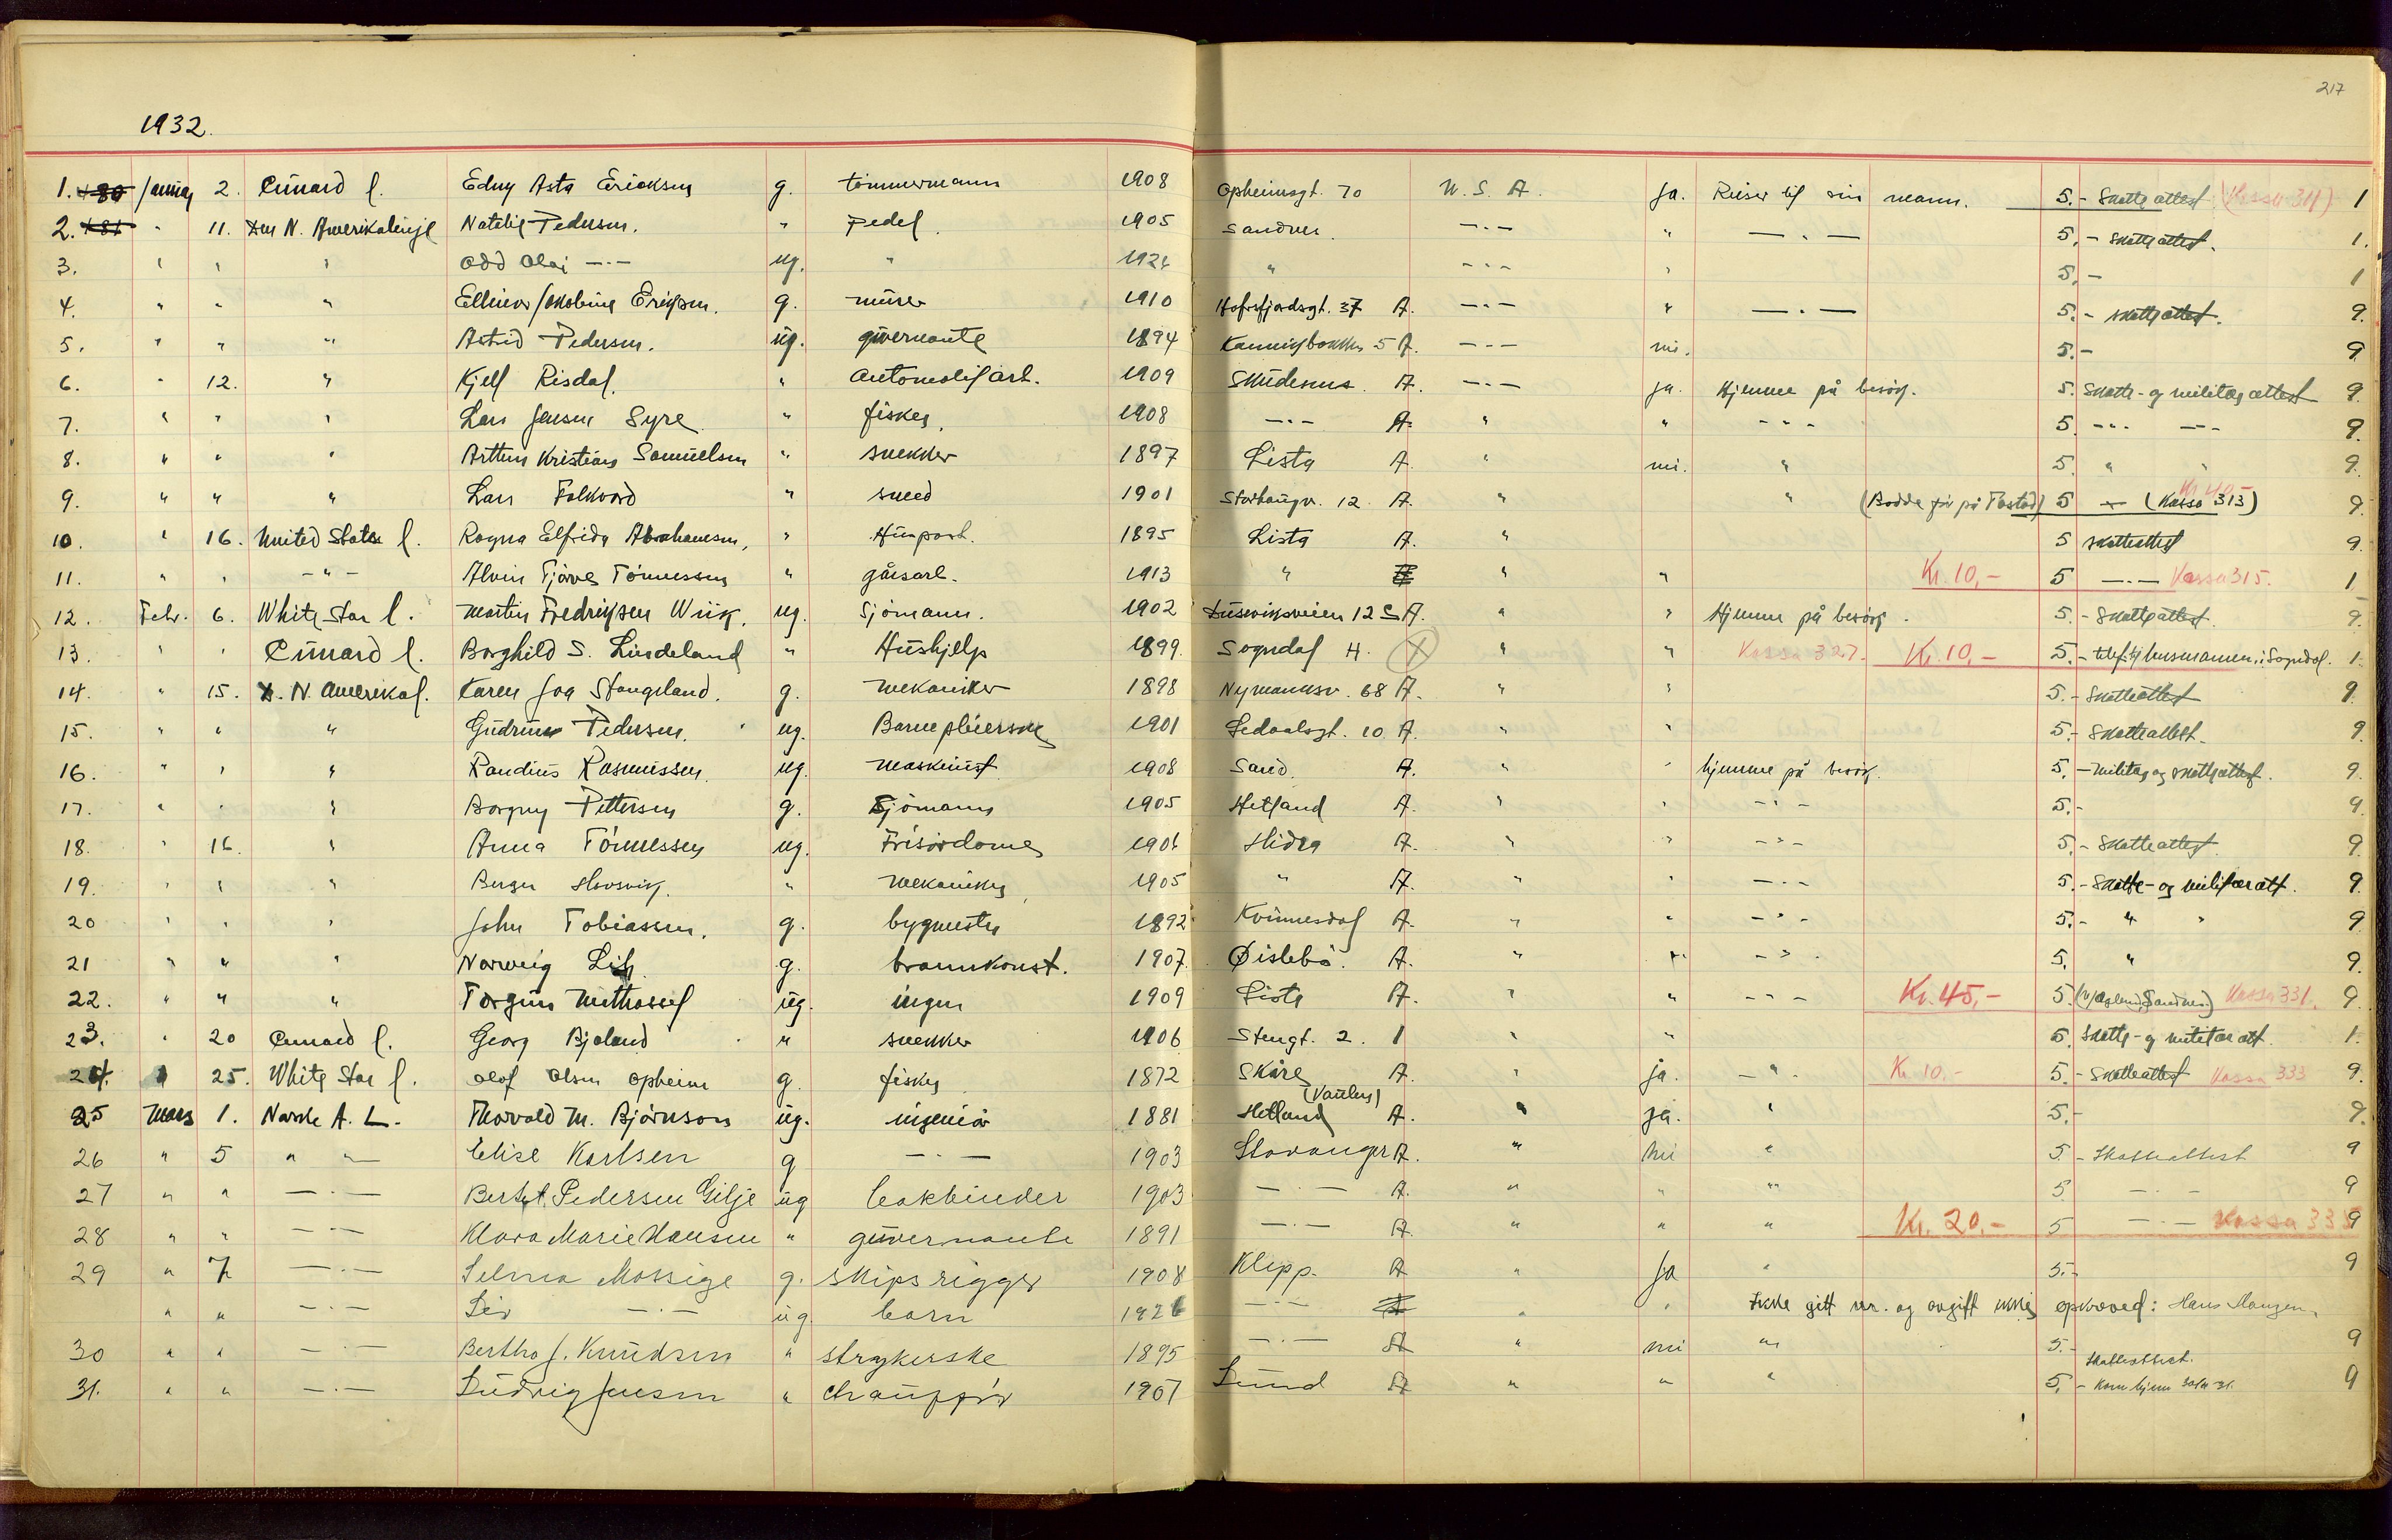 217
1932.
1. 180 januar 2. Cunard l. Edny Asta Ericksen g. tømmermann 1908 Opheimsgt. 70 U. S. A. ja. Reiser til sin mann. 5.- Skatteattest (Kassa 311) 1
2. 181 " 11. Den N. Amerikalinje Natalie Pedersen. " Pedel 1905 Sandnes. -"- " -"- 5.- Skatteattest. 1.
3. " " " Odd Olai -"- ug. " 192 " -"- " 5.- 1
4. " " " Ellinor Jakobine Eriksen. g. murer 1910 Hafrsfjordsgt. 37 A. -"- " -"- 5.- skatteattest. 9.
5. " " " Astrid Pedersen. ug. guvernante 1894 Kannikbakken 5 A. -"- nei. 5.- 9
6. " 12. " Kjell Risdal. " Automobilarb. 1909 Skudesnes. A. -"- ja. Hjemme på besøk. 5. Skatte- og militærattest 9.
7. " " " Lars Jensen Syre " fisker. 1908 -"- A. " " -"- 5. -"- -"- 9.
8. " " " Arthur Kristian Samuelsen " snekker 1897 Lista A. " nei. " 5. " " 9.
9. " " " Lars Folkvord " smed 1901 Storhaugv. 12. A. " " (Bodde før på Tastad) 5 -"- Kr 40- (Kassa 313) 9.
10. " 16. United States l. Ragna Elfrida Abrahamsen, " Husarb. 1895 Lista A. " 5 skatteattest 9.
11. " " -"- Alvin Tjørve Tønnessen " gårsarb. 1913 " " " Kr. 10,- 5 -"- Kassa 315. 1
12. Febr. 6. White Star l. Martin Fredriksen Wiig. ug. Sjømann. 1902 Dusviksveien 12 A. " " Hjemme på besøk. 5.- Skatteattest. 9.
13. " " Cunard l. Borghild S. Lindeland " Hushjelp 1899. Sogndal H. X " " Kassa 327. Kr. 10,- 5.- tlf. til lensmannen i Sogndal. 1.
14. " 15. D. N. Amerikal. Karen Joa Stangeland. g. mekaniker 1898 Nymannsv. 68 A. " " 5.- Skatteattest 9.
15. " " " Gudrun Pedersen. ug. Barnepleierske 1901 Ledaalsgt. 10 A. " " 5.- Skatteattest. 9.
16. " " " Randius Rasmussen. ug. maskinist 1908 Sand. A. " " hjemme på besøk. 5.- militær og skatteattest. 9.
17. " " " Borgny Pettersen g. Sjømann 1905 Hetland A. " " -"- 5.- 9.
18. " 16. " Anna Tønnessen ug. Frisørdame 190 Hidra A. " " -"- 5.- Skatteattest 9.
19. " " " Berger Hovsvik. " mekaniker 1905 " A. " " -"- 5.- Skatte- og militæratt. 9.
20 " " " John Tobiassen. g. bygmester 1892 Kvinnesdal A. " " -"- 5.- " " 9
21 " " " Norveig Lih g. brannkonst. 1907. Øislebø. A. " " -"- 5. " 9.
22. " " " Torgius ug. ingen 1909 Lista A. " " -"- Kr. 45,- 5. (v/Asland, Sandnes) Kassa 331. 9.
23. " 20 Cunard l. Georg Bjoland " snekker 1906 Stengt. 2. 1 " " 5. Skatte- og militæratt. 1.
24. " 25. White Star l. Olof Olsen Opheim g. fisker 1872 Skåre A. " ja. -"- Kr. 10.- 5.- Skatteattest Kassa 333 9.
25 Mars 1. Norske A. L. Thorvald M. Bjørnson ug. ingeniør 1881 Hetland (Vaulen) A. " ja. " 5.- 9.
26 " 5 " " Elise Karlsen g -"- 1903 Stavanger A. " nei " 5.- Skatteattest 9
27 " " -"- Berthel Pedersen Gilje ug bokbinder 1903 -"- A. " " " 5 -"- 9
28 " " -"- Klara Marie Hansen " guvernante 1891 -"- A. " " " Kr. 20.- 5 -"- Kassa 335 9
29 " 7 -"- Selma Mossige g. skipsrigger 1908 Klepp. A " ja " 5.- 9
" " -"- Liv -"- ug barn 192 -"- " " Ikke gitt nr. og avgift ikke opkrævet: Hans Mangen.
30 " " -"- Bertha J. Knudsen " strykerske 1895 -"- A " nei " 5.- 9
31. " " -"- Ludvig Jensen " chauffør 1907 Lund A " " " 5.- Skatteattest. Kom hjem 30/10-31. 9